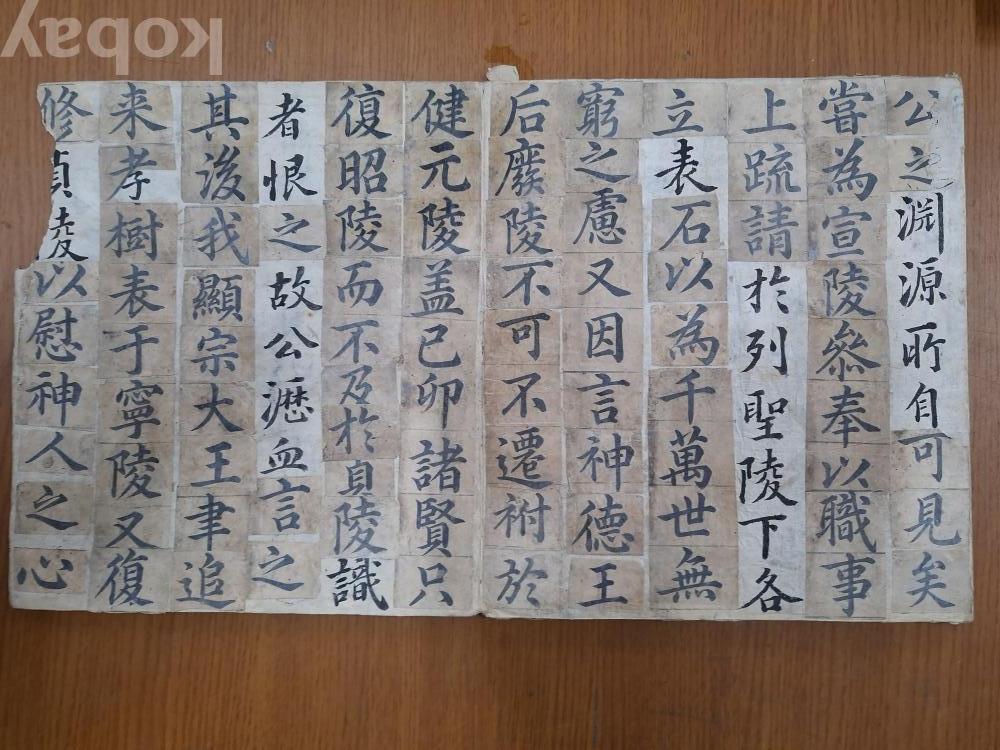 公之淵源所自可見矣
嘗為宣陵叅奉以職事
上疏請於列聖陵下各
立表石以為千萬世無
窮之慮又因言神德王
后廢陵不可不遷祔於
健元陵盖已卯諸賢只
復昭陵而不及於貞陵識
者恨之故公瀝血言之
其後我顯宗大王聿追
来孝樹表于寧陵又復
修貞陵以慰神人之心
kobay